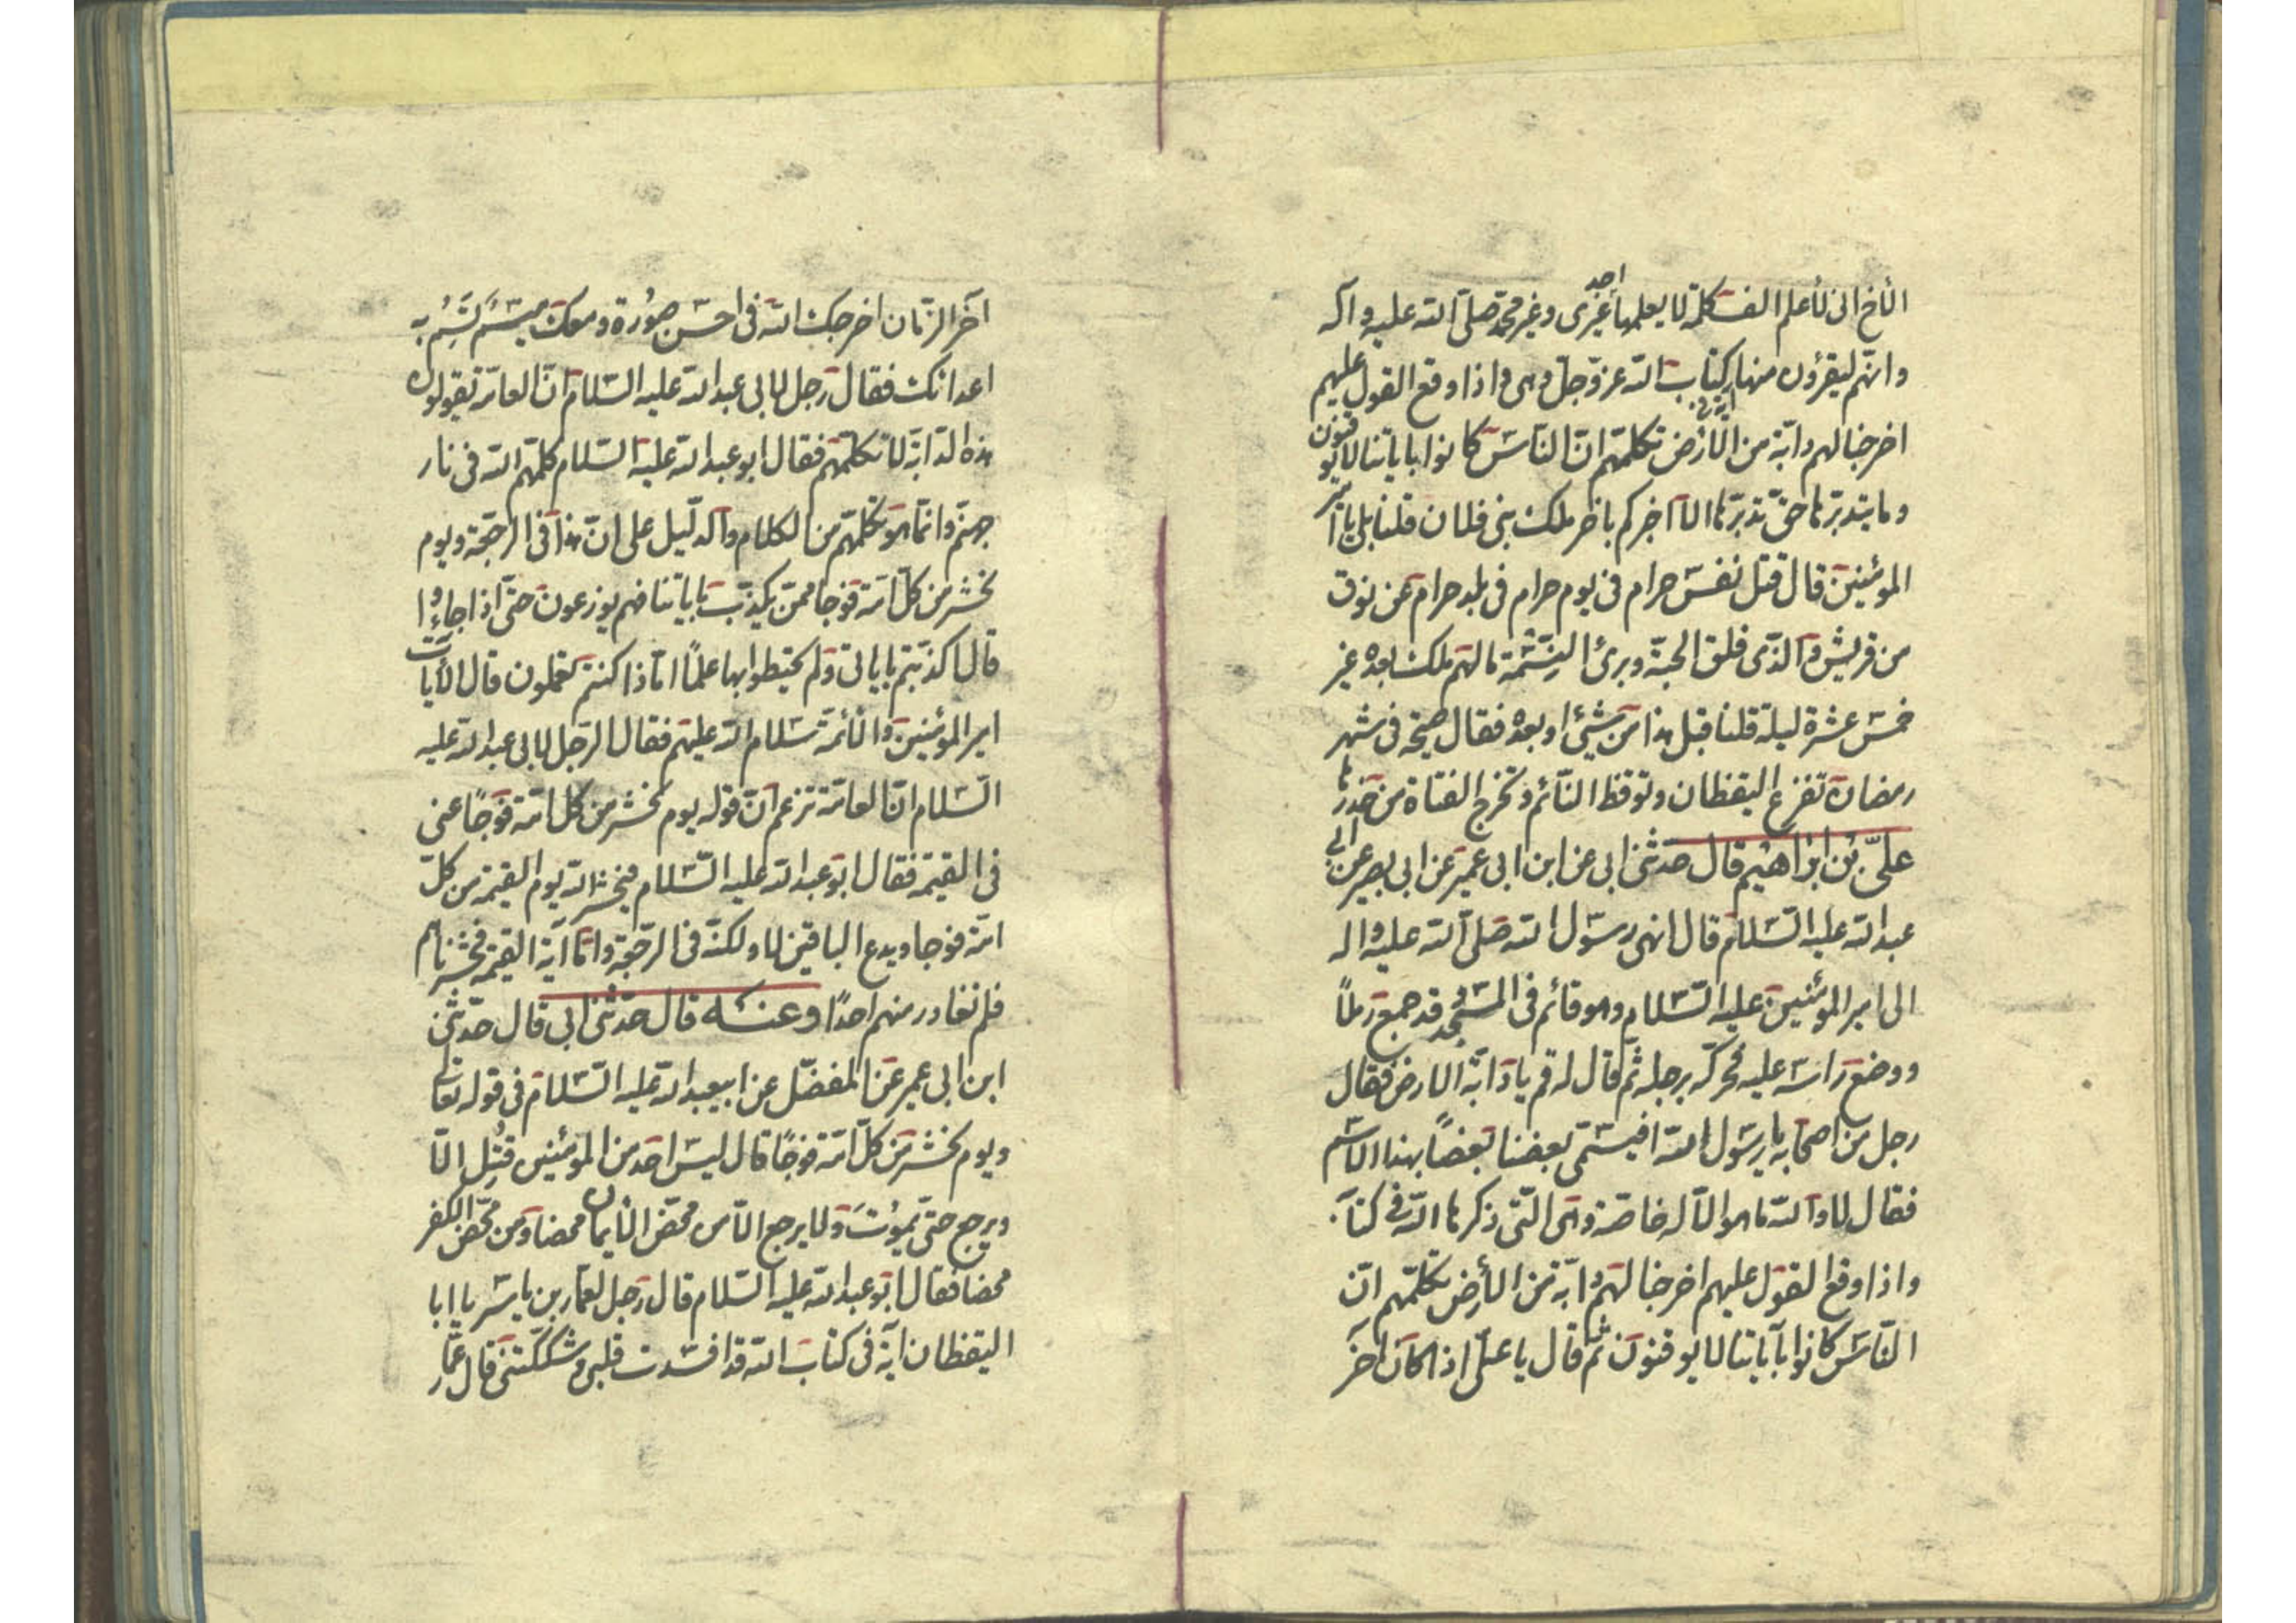 الأخ انى لأعلم الف كلمة لا يعلمها احد غيرى وغير محمد صلى الله عليه واله
وانهم ليقرؤن منها اية فى كتاب الله عز وجل وهى واذا وقع القول عليهم
اخرجنا لهم دابة من الأرض تكلمهم ان الناس كانوا باياتنا لا يوقنون
وما يتدبرها حق تدبرها الا اخبركم باخر ملك بنى فلان قلنا بلى يا امير
المؤمنين قال قتل نفس حرام فى يوم حرام فى بلد حرام عن نوق
من قريش والذى فلق الحبة وبرئ النسمة ما لهم ملك بعده غير
خمس عشرة ليلة قلنا قبل هذا من شيئ او بعده فقال صيحة فى شهر
رمضان تفزع اليقظان وتوقظ النائم وتخرج الفتاة من خدرها
علي بن ابراهيم قال حدثنى ابى عن ابن ابى عمير عن ابى بصير عن ابى
عبد الله عليه السلام قال انهى رسول الله صلى الله عليه واله
الى امير المؤمنين عليه السلام وهو قائم فى المسجد قد جمع رملاً
ووضع راسه عليه فحركه برجله ثم قال له قم يا دابة الارض فقال
رجل من اصحابه يا رسول الله افيسمى بعضنا بعضاً بهذا الاسم
فقال لا والله ما هو الا له خاصة وهى التى ذكرها الله فى كتابه
واذا وقع القول عليهم اخرجنا لهم دابة من الأرض تكلمهم ان
الناس كانوا بآياتنا لا يوقنون ثم قال يا على اذا كان اخر
آخر الزمان اخرجك الله فى احسن صورة ومعك ميسم تسم به
اعدائك فقال رجل لابى عبد الله عليه السلام ان العامة تقولون
هذه الدابة لا تكلمهم فقال ابو عبد الله عليه السلام كلمهم الله فى نار
جهنم وانما هو تكلمهم من الكلام والدليل على ان هذا فى الرجعة ويوم
نحشر من كل امة فوجا ممن يكذب باياتنا فهم يوزعون حتى اذا جاءوا
قال اكذبتم باياتى ولم تحيطوا بها علماً اماذا كنتم تعملون قال الأيات
امير المؤمنين والأئمة سلام الله عليهم فقال الرجل لابى عبد الله عليه
السلام ان العامة تزعم ان قوله يوم نحشر من كل امة فوجاً عنى
فى القيمة فقال ابو عبد الله عليه السلام فيحشر الله يوم القيمة من كل
امة فوجا ويدع الباقين لا ولكنه فى الرجعة واما آية القيمة فحشرناهم
فلم نغادر منهم احداً وعنه قال حدثنى ابى قال حدثنى
ابن ابى عمير عن المفضل عن ابيعبد الله عليه السلام فى قوله تعالى
ويوم نحشر من كل امة فوجاً قال ليس احد من المؤمنين قتل الا
ويرجع حتى يموت ولا يرجع الا من محض الأيمان محضا ومن محض الكفر
محضا فقال ابو عبد الله عليه السلام قال رجل لعمار بن ياسر يا ابا
اليقظان آية فى كتاب الله قد افسدت قلبى وشككتنى قال عمار